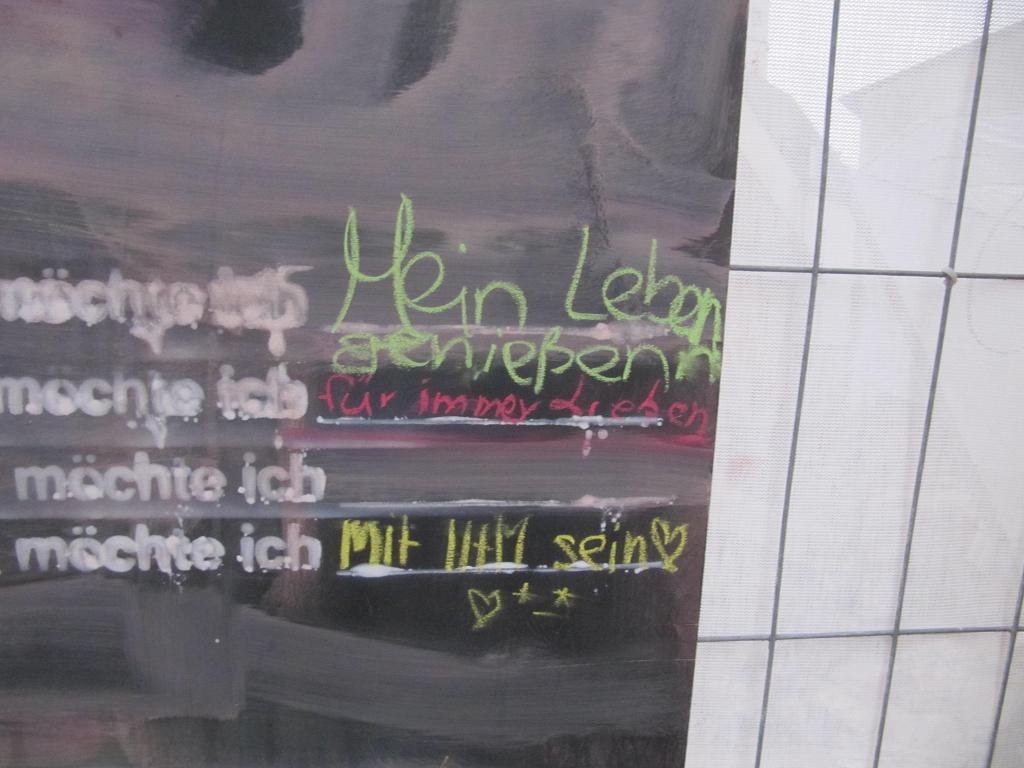 möchte ich Mein Leben
genießen
möchte ich für immer Lieben
möchte ich
möchte ich Mit sein♡
♡ *_*